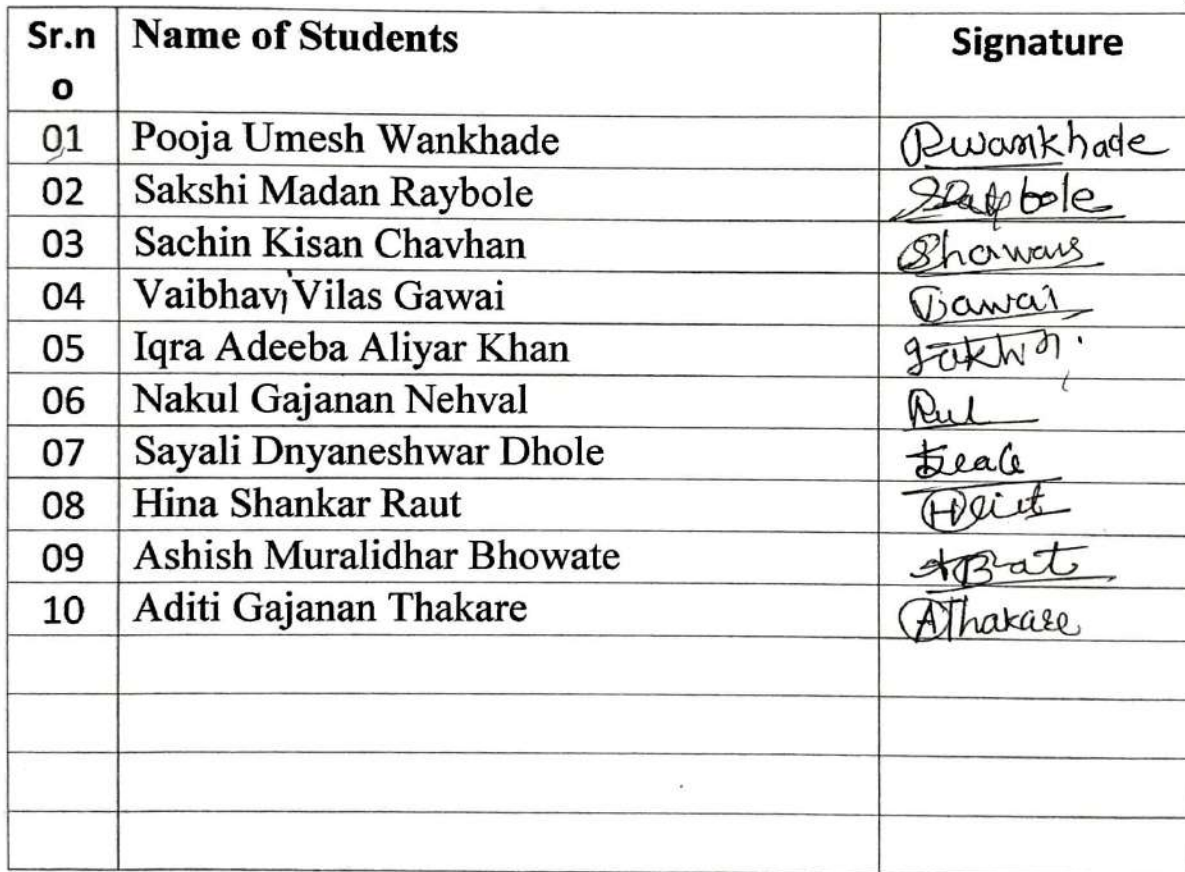 Sr.n Name of Students Signature
o
01 Pooja Umesh Wankhade Pwankhade
02 Sakshi Madan Raybole
03 Sachin Kisan Chavhan
04 Vaibhavi Vilas Gawai Gawai
05 Iqra Adeeba Aliyar Khan
06 Nakul Gajanan Nehval
07 Sayali Dnyaneshwar Dhole
08 Hina Shankar Raut
09 Ashish Muralidhar Bhowate
10 Aditi Gajanan Thakare AThakare